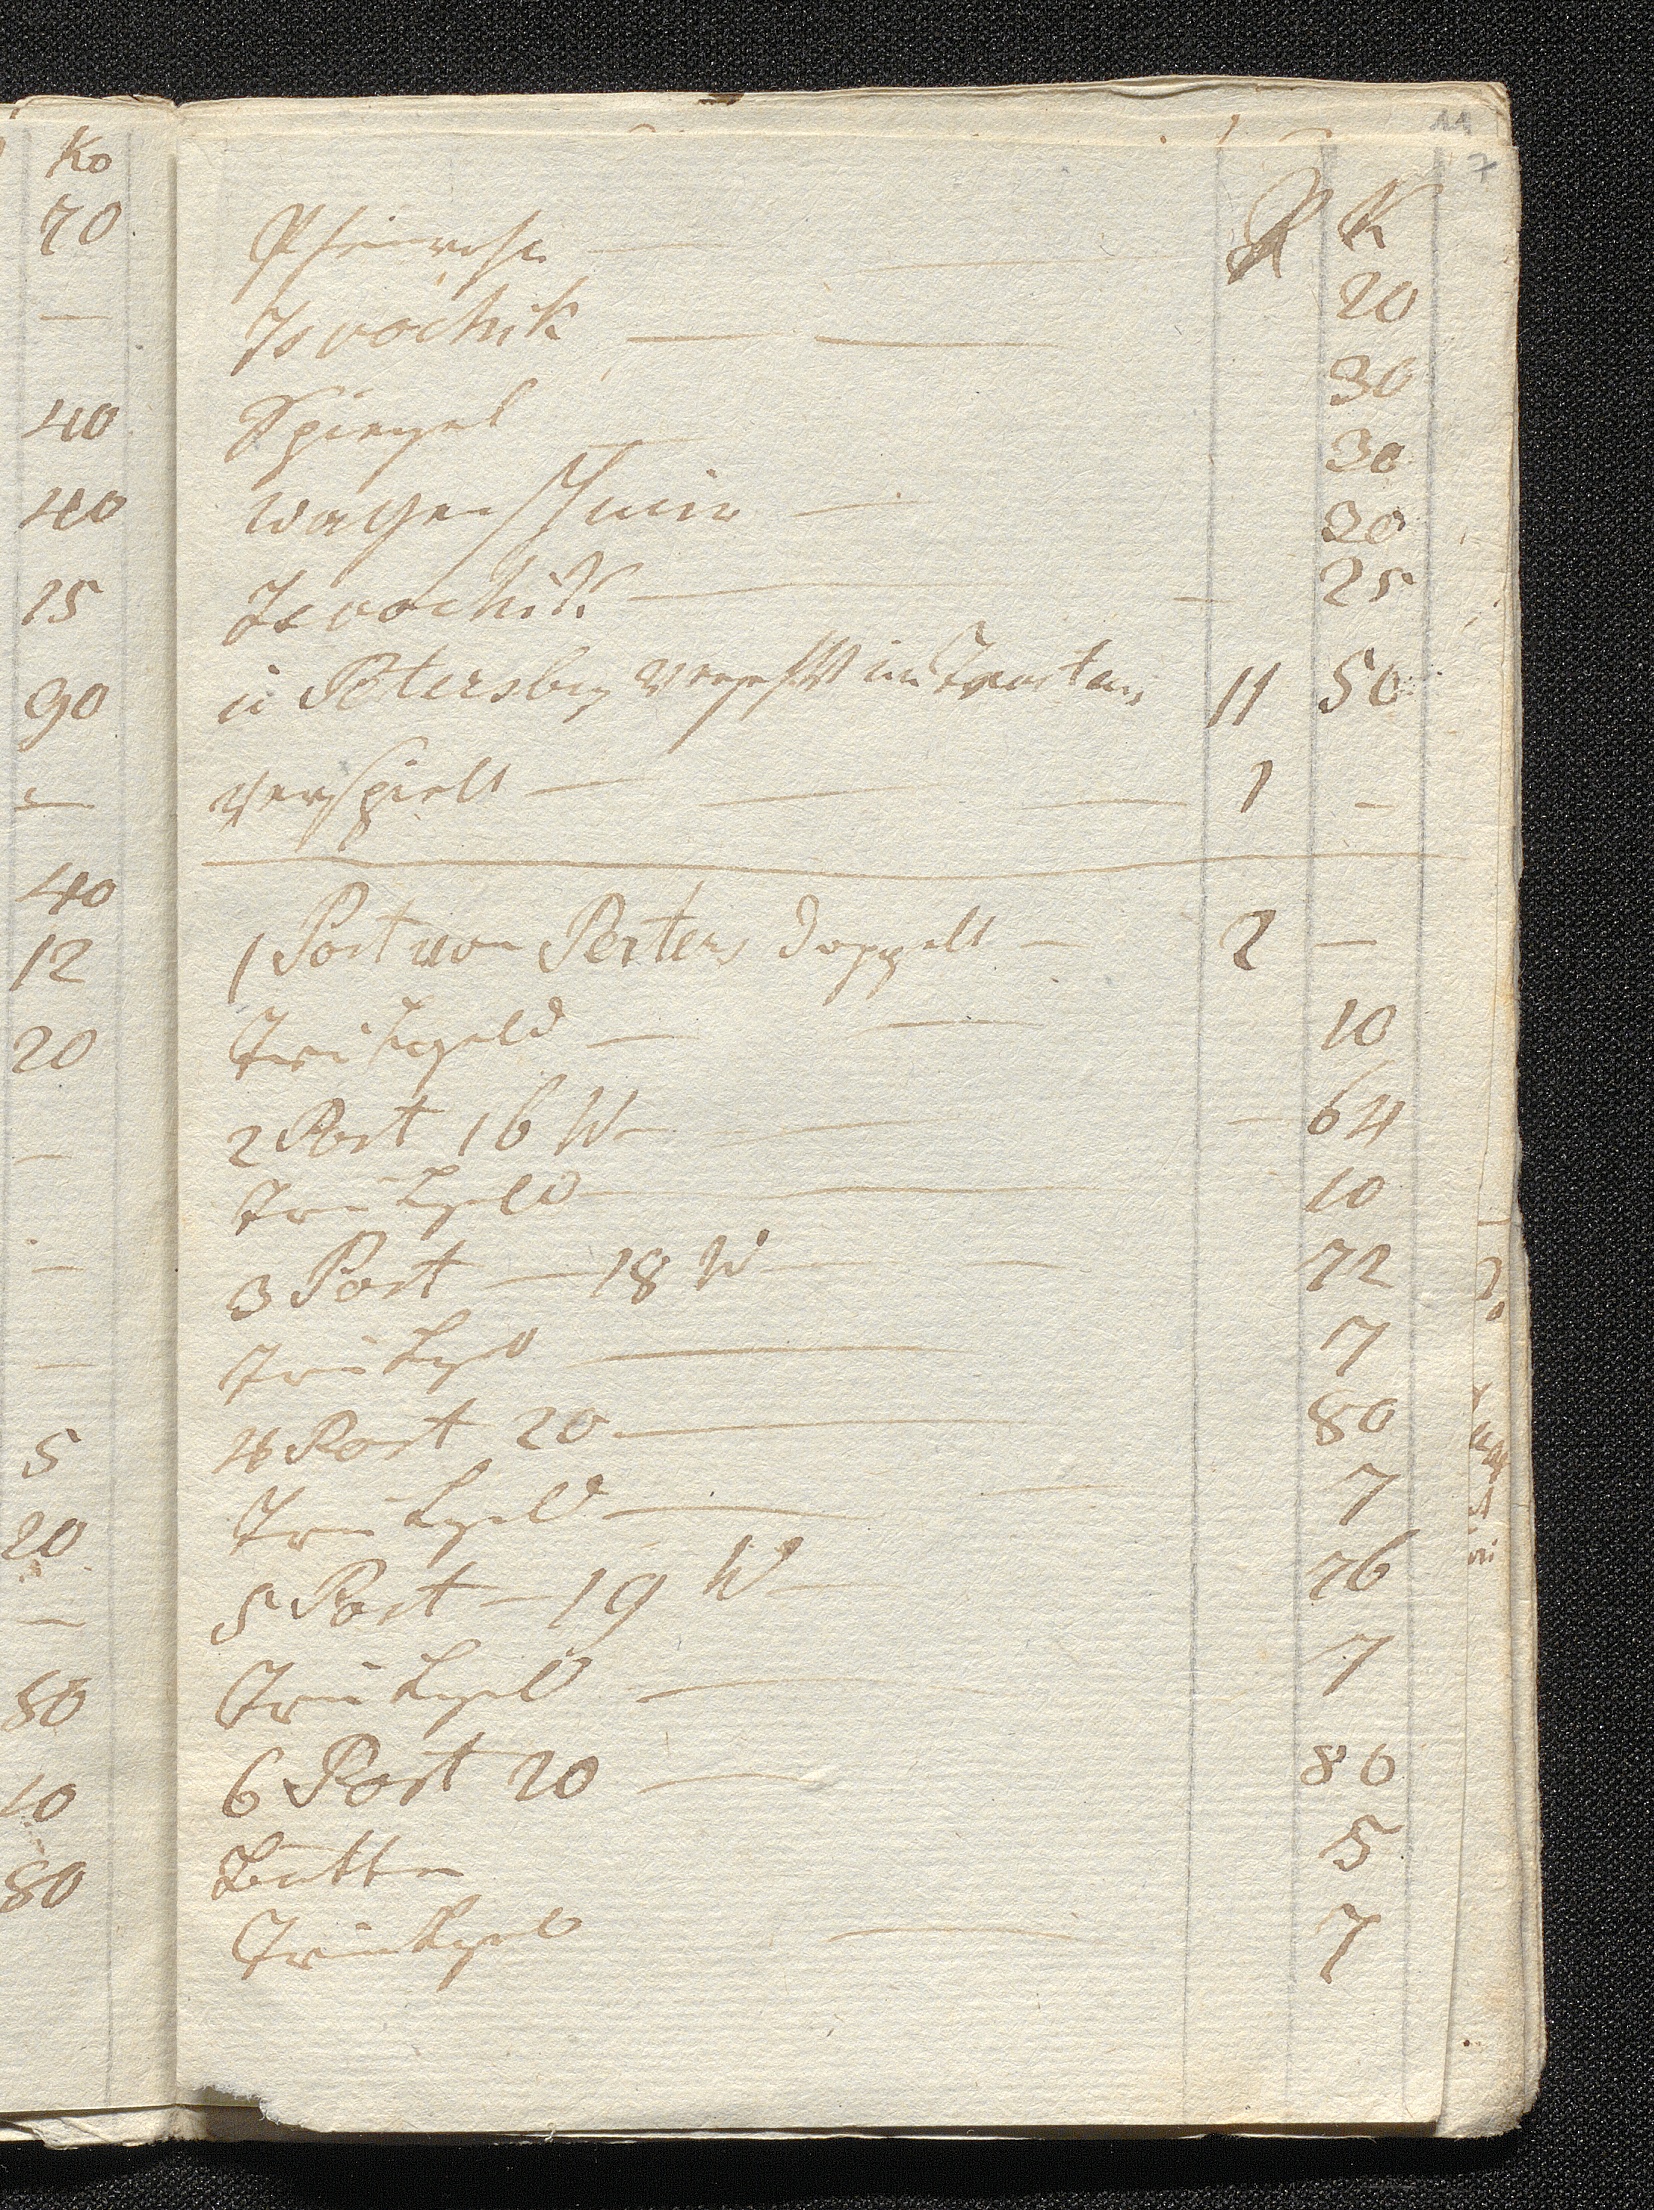 Ko
70
—
40
40
15
90
—
40
12
20
—
—
—
5
20
—
80
40
80
11
7
R K
— 20
Isvochik — — 30
Spiegel — 30
Wagenschmir — 30
Isvochik — — 25
in Petersburg 11 50
verspielt — — — 1 —
1 Post von Peters doppelt — 2 —
Trinkgeld — — 10
2 Post 16 W — — 64
Trinkgeld — 10
3 Post — 18 W — — 72
Trinkgel — 7
4 Post 20 — 80
Trinkgeld — — 7
5 Post — 19 W — 76
Trinkgeld — 7
6 Post 20 — 80
5
Trinkgeld — 7